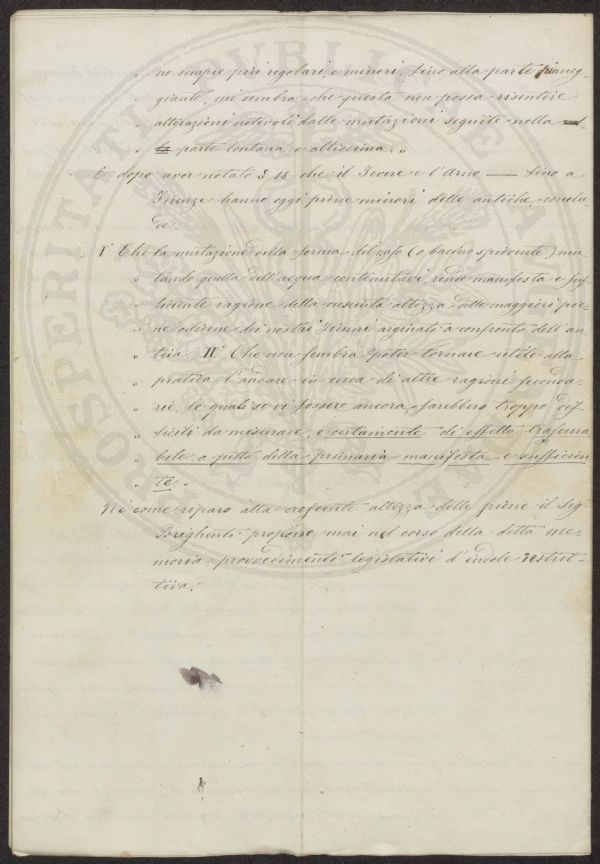 „ no sempre più regolari, e minori, sino alla parte pianeg-
„ giante, mi sembra che questa non possa risentire
„ alterazioni notevoli dalle mutazioni seguite nella
„ parte lontana e altissima. „
E dopo aver notato § 18 che il Tevere e l'Arno — sino a
Firenze hanno oggi piene minori delle antiche, conclu-
de:
I° Che la mutazione della forma del vaso (o bacino spiovente) mu-
„ tando quella dell'acqua contenutavi, rende manifesta e suf-
„ ficiente ragione della cresciuta altezza delle maggiori pie-
„ ne odierne dei nostri fiumi arginati a confronto dell'an-
„ tica. II° Che non sembra poter tornare utile alla
„ pratica l'andare in cerca di altre ragioni seconda-
„ rie, le quali se vi fossero ancora, sarebbero troppo dif-
„ ficili da misurare, e certamente di effetto trascura
„ bile a petto della primaria manifesta e sufficien
„ te. „
Nè come riparo alla crescente altezza delle piene il Sig.
Brighenti propone mai nel corso della detta me-
moria, provvedimenti legislativi d'indole restrit-
tiva.
PROSPERITATI PVBLICAE